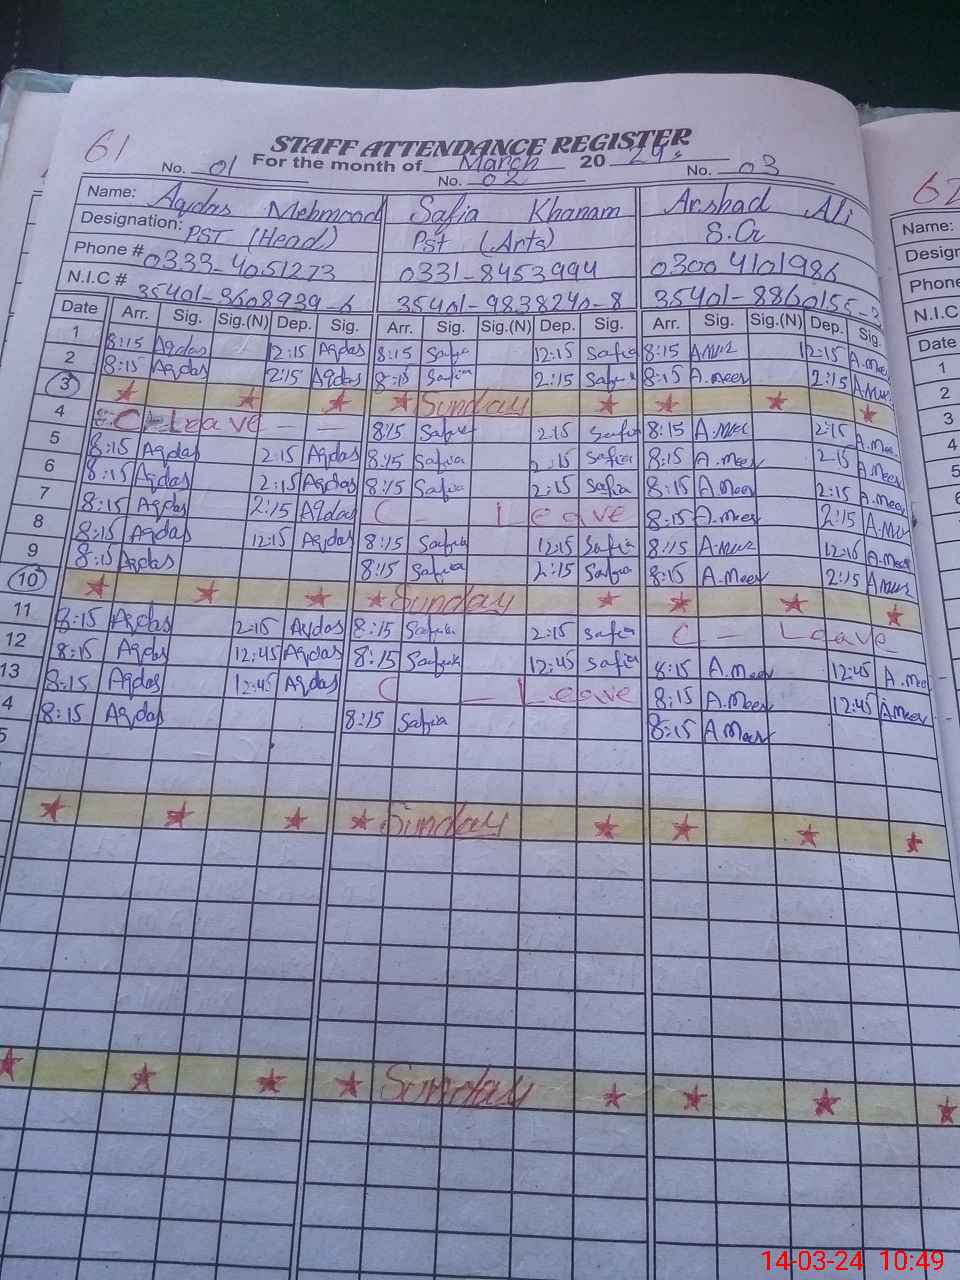 61
STAFF ATTENDANCE REGISTER
For the month of March 2024
No. 01 No. 02 No. 03
Name: Aqdas Mehmood Safia Khanam Arshad Ali
Designation: PST (Head) Pst (Arts)
Phone # 0333-4051273 0331-8453994 03004101986
N.I.C # 35401-3608939-6 35401-9838240-8 35401-8860155-3
Date Arr. Sig. Sig.(N) Dep. Sig. Arr. Sig. Sig.(N) Dep. Sig. Arr. Sig. Sig.(N) Dep. Sig.
1 8:15 Aqdas 12:15 Aqdas 8:15 Safia 12:15 Safia 8:15 12:15
2 8:15 Aqdas 2:15 Aqdas 8:15 Safia 2:15 Safia 8:15 A.Meer 2:15
3 Sunday
4 C-Leave - - 8:15 Safia 2:15 Safia 8:15 2:15
5 8:15 Aqdas 2:15 Aqdas 8:15 Safia 2:15 Safia 8:15 A.Meer 2:15 A.Meer
6 8:15 Aqdas 2:15 Aqdas 8:15 Safia 2:15 Safia 8:15 A.Meer 2:15 A.Meer
7 8:15 Aqdas 2:15 Aqdas C - Leave 8:15 A.Meer 2:15
8 8:15 Aqdas 12:15 Aqdas 8:15 Safia 12:15 Safia 8:15 12:15 A.Meer
9 8:15 Aqdas 8:15 Safia 2:15 Safia 8:15 A.Meer 2:15
10 Sunday
11 8:15 Aqdas 2:15 Aqdas 8:15 Safia 2:15 Safia C - Leave
12 8:15 Aqdas 12:45 Aqdas 8:15 Safia 12:45 Safia 8:15 A.Meer 12:45 A.Meer
13 8:15 Aqdas 12:45 Aqdas C - Leave 8:15 A.Meer 12:45 A.Meer
4 8:15 Aqdas 8:15 Safia 8:15 A.Meer
5
Sunday
Sunday
62
Name:
Design
Phone
N.I.C
Date
1
2
3
4
5
6
7
8
9
10
11
14-03-24 10:49